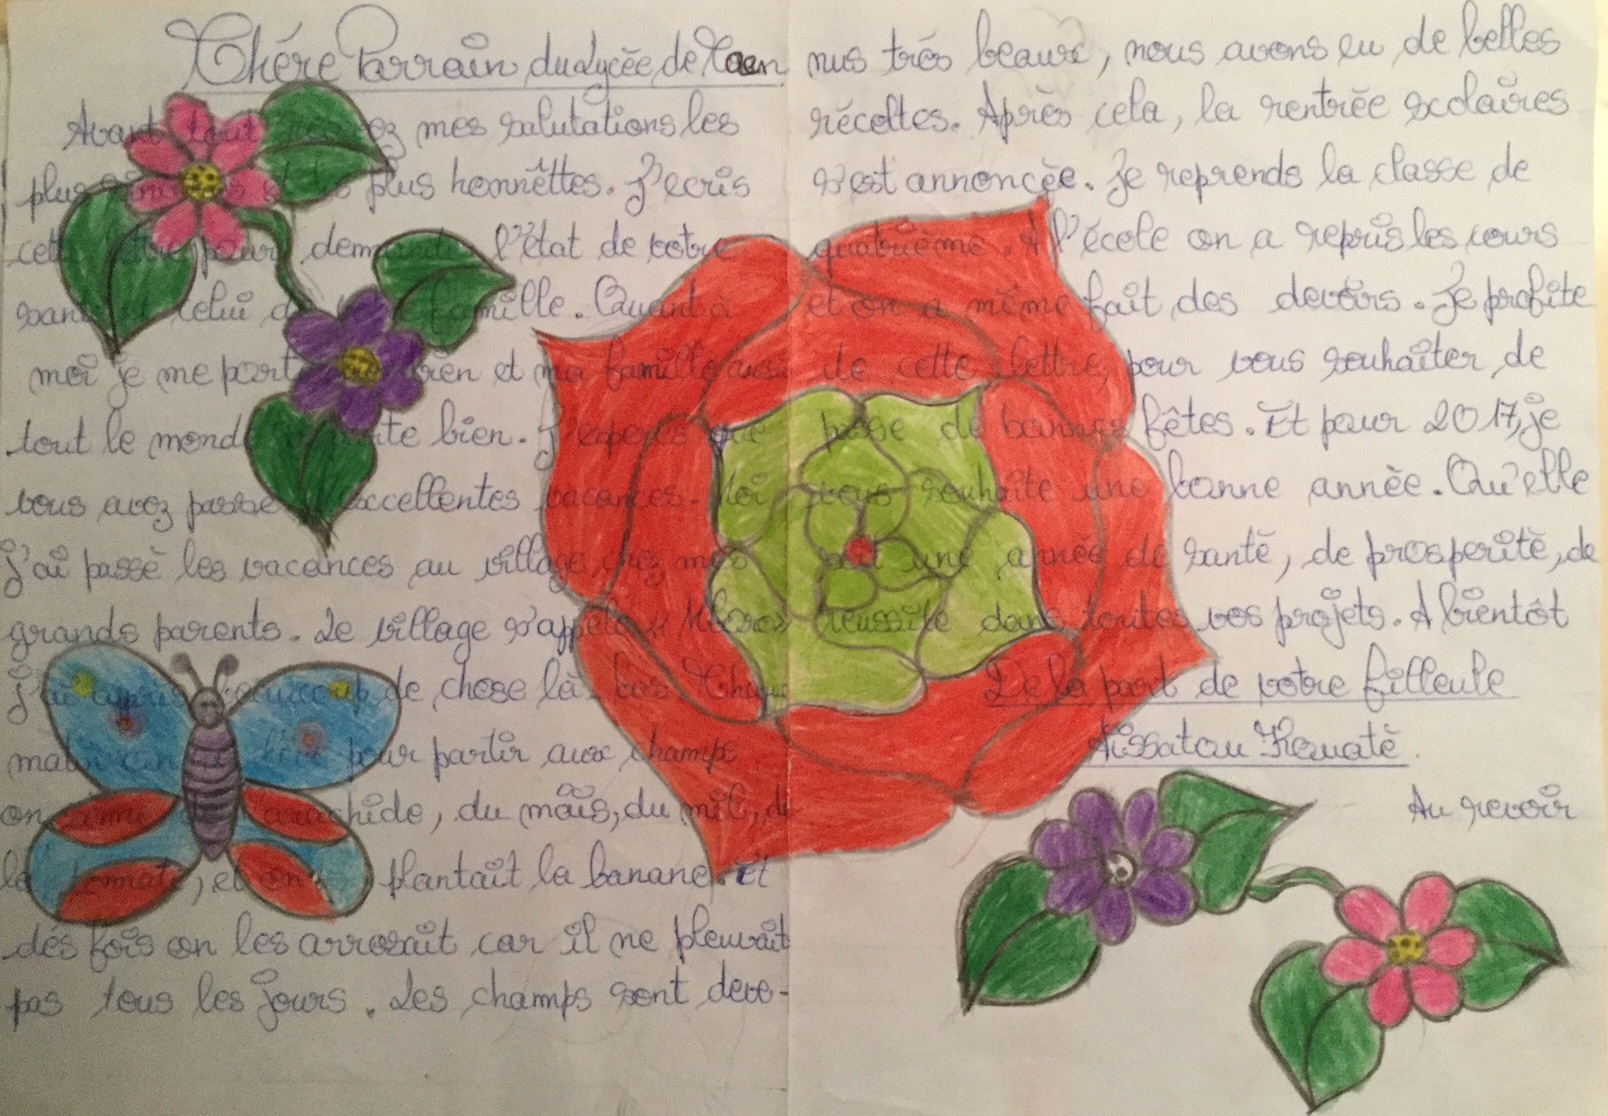 Chére Parrain du Lycée de Caen
Avant tout recevez mes salutations les
plus sincères et les plus honnêttes. J'ecris
cette lettre pour demande l'état de votre
santé et celui de votre famille. Quant à
moi je me porte bien et ma famille aussi
tout le monde se porte bien. J'espère que
vous avez passé d'excellentes vacances. Moi
j'ai passé les vacances au village chez mes
grands parents. Le village s'appele
j'ai appris beaucoup de chose là-bas Chaque
matin on se lève pour partir aux champs
on semé de l'arachide, du maïs, du mil, de
la tomate, et on plantait la banane. Et
dés fois on les arrosait car il ne pleuvait
pas tous les jours. Les champs sont deve-
nus trés beaux, nous avons eu de belles
récoltes. Après cela, la rentrée scolaires
s'est annoncée. Je reprends la classe de
quatrième. A l'école on a repris les cours
et on a même fait des devoirs. Je profite
de cette lettre, pour vous souhaiter de
passe de bonnes fêtes. Et pour 2017, je
vous souhaite une bonne année. Qu'elle
soit une année de santé, de prosperité, de
réussite dans toutes vos projets. A bientôt
De la part de votre filleule
Aissatou Konaté.
Au revoir